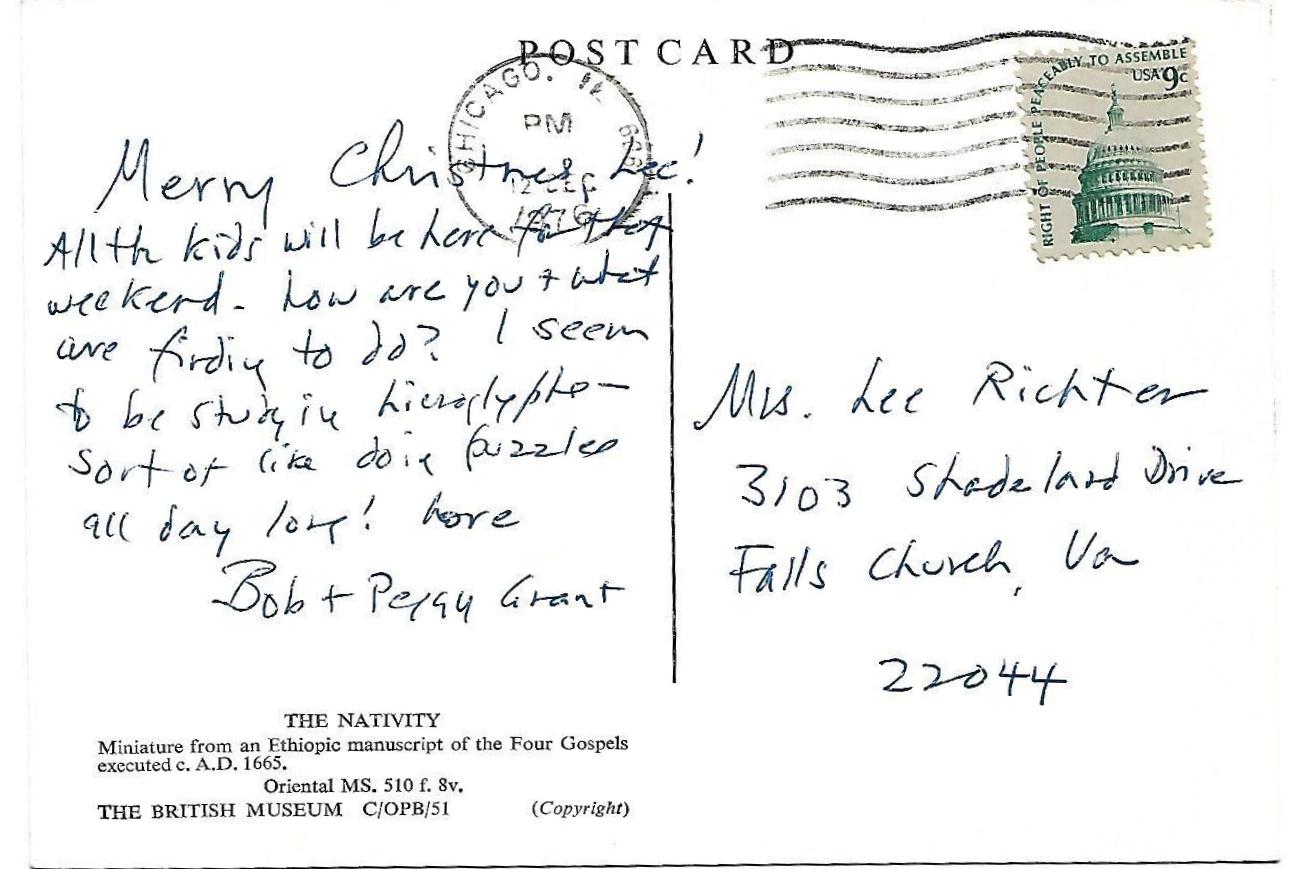 POST CARD
CHICAGO, IL 606
PM
12 DEC
1976
RIGHT OF PEOPLE PEACEABLY TO ASSEMBLE
USA 9c
Merry Christmas Lee!
All the kids will be here for that
weekend. How are you + what
are finding to do? I seem
to be studying hieroglyphs—
sort of like doing puzzles
all day long! Love
Bob + Peggy Grant
Mrs. Lee Richter
3103 Shadeland Drive
Falls Church, Va
22044
THE NATIVITY
Miniature from an Ethiopic manuscript of the Four Gospels
executed c. A.D. 1665.
Oriental MS. 510 f. 8v.
THE BRITISH MUSEUM C/OPB/51 (Copyright)